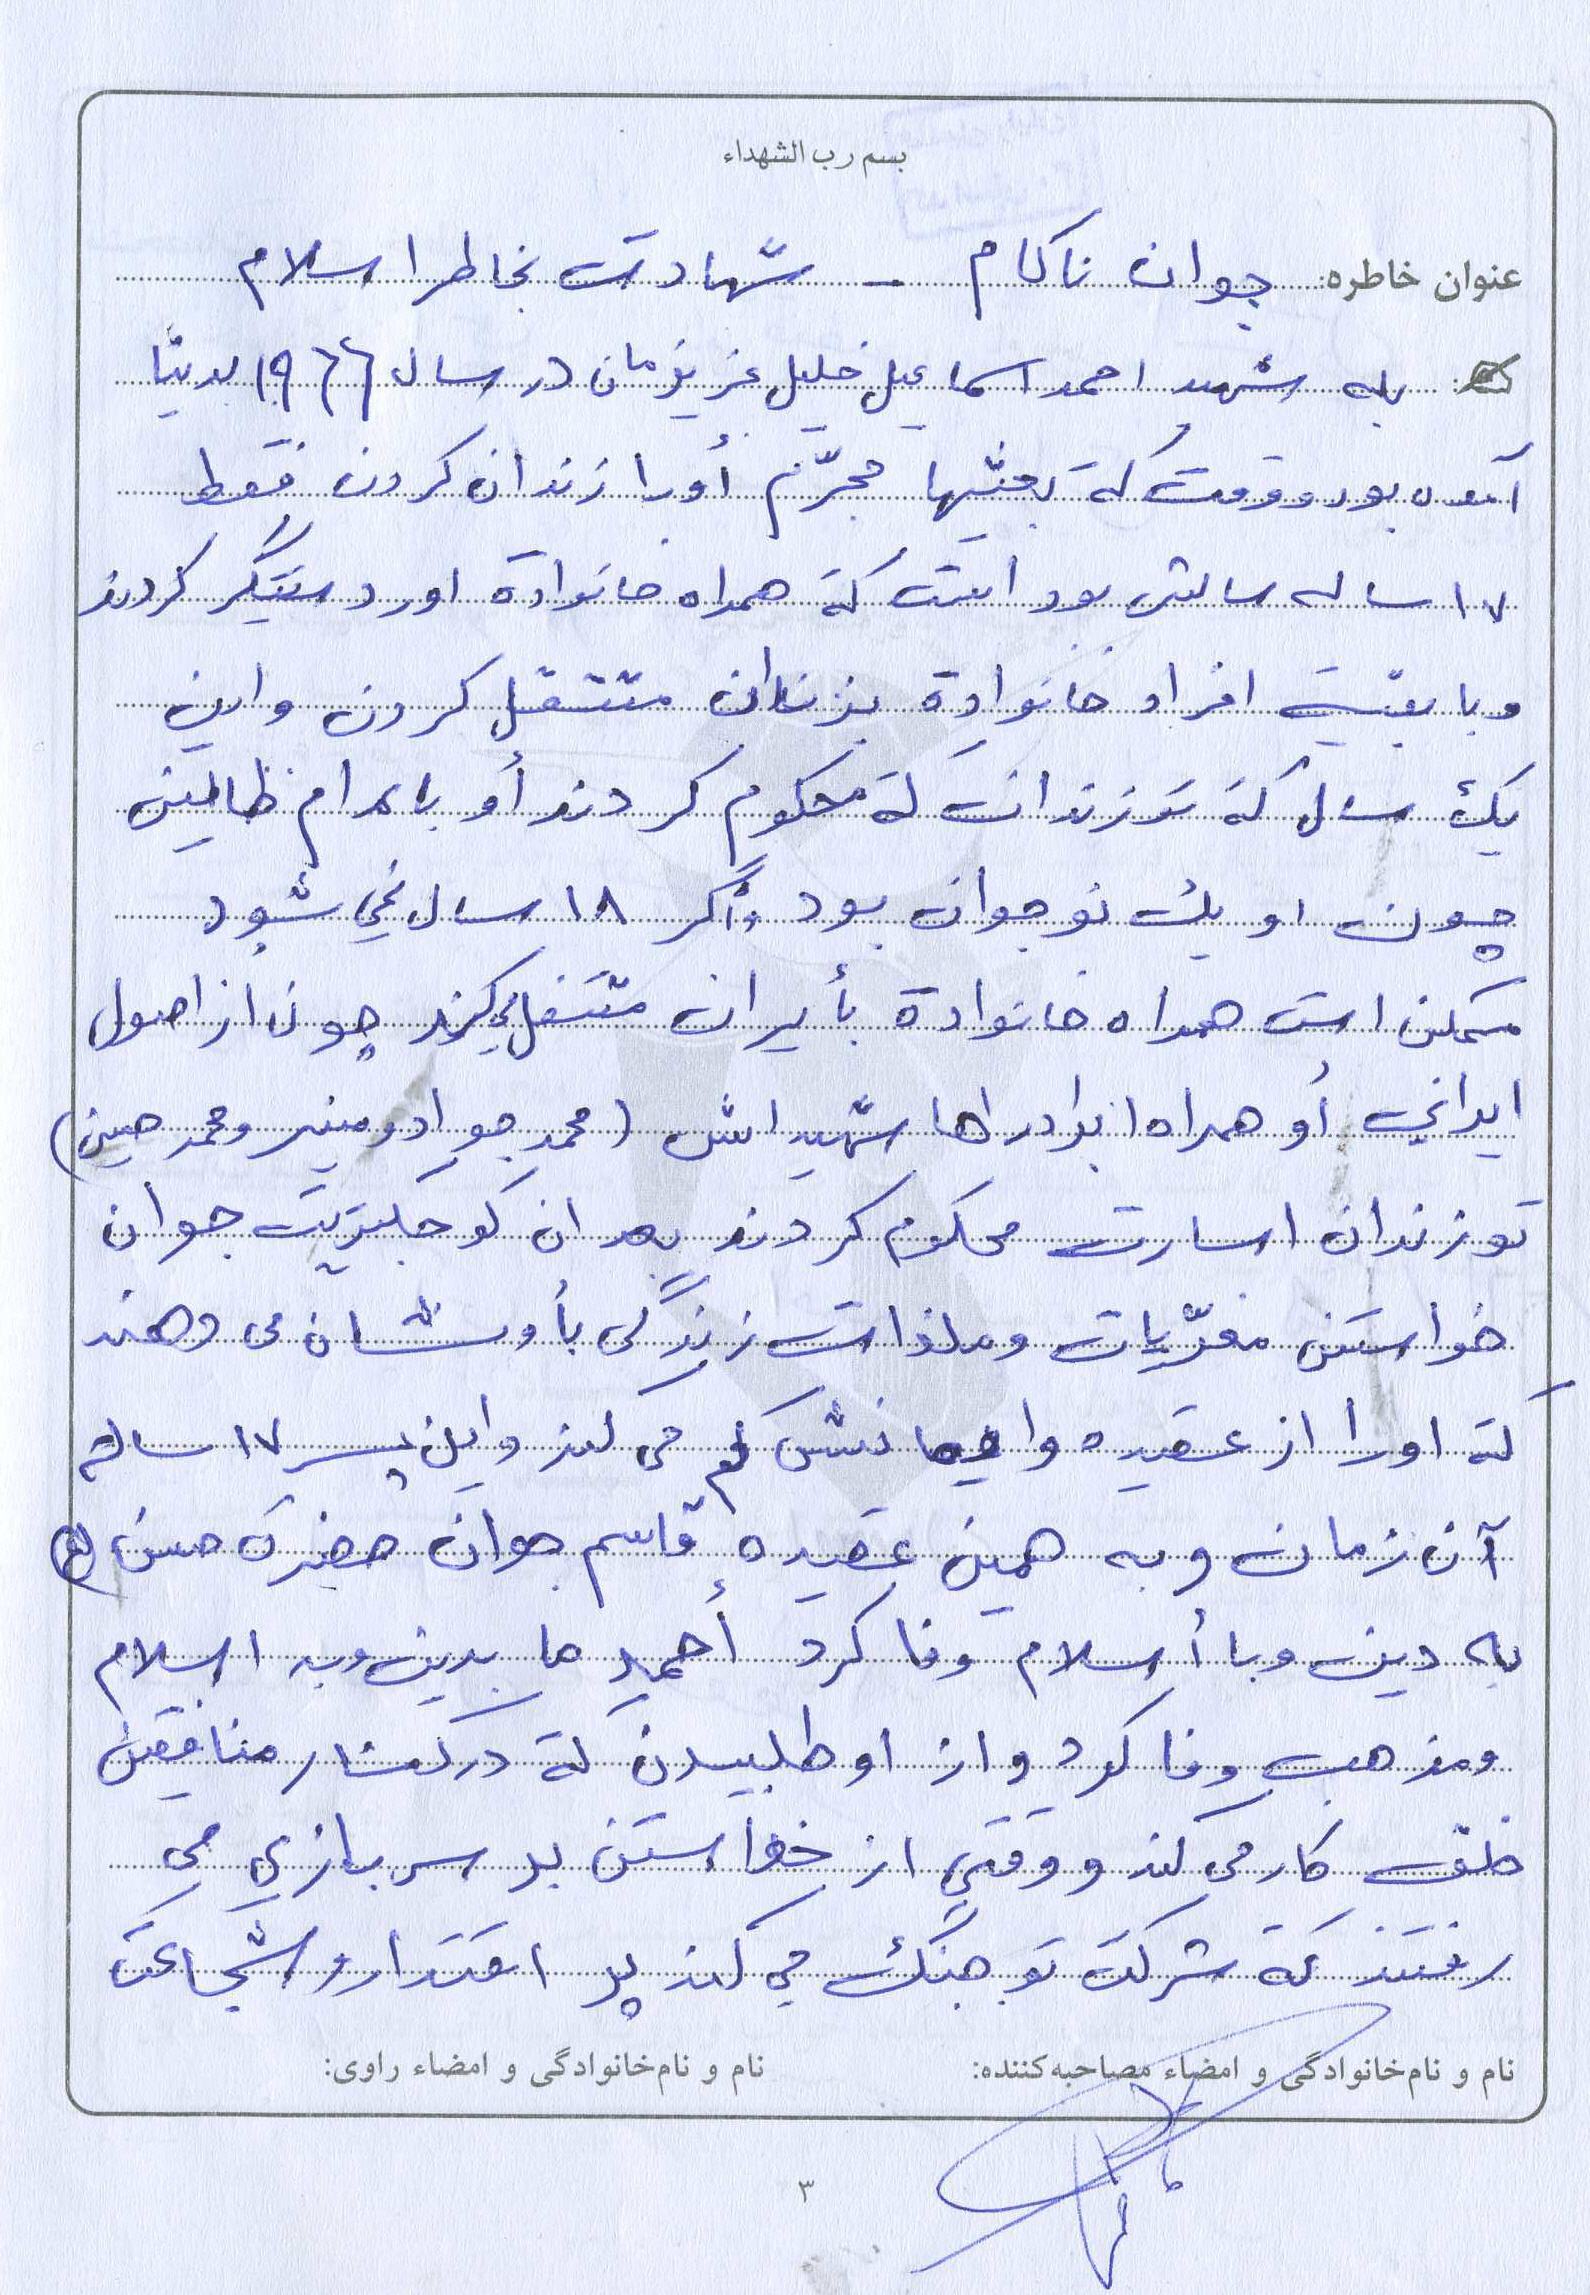 بسم رب الشهداء
عنوان خاطره: جوان ناکام - شهادت بخاطر اسلام
بله شهید احمد اسماعیل خلیل عزیزمان در سال ١٩٦٦ بدنیا
آمده بود و وقت کة بعثیها مجرّم أورا زندان کردن فقط
١٧ ساله سالش بود است کة همراه خانوادة اورد ستگیر کردند
وبا بقیة افراد خانوادة بزندان منتقل کردن واین
یک سال کة تو زندان کة محکوم کردند أو باعدام ظالمین
چون او یک نوجوان بود واگر ١٨ سال نمي شود
ممکن است همراه خانوادة بأیران منتقل میکند چون از اصول
ایراني أو همراه ابرادراها شهیداش (محمد جواد ومنیر ومحمد حسین)
تو زندان اسارت محکوم کردند بعد ان کوچکیترین جوان
خواستن مغریات وملذات زندگی بأو نشان می دهند
کة اورا از عقیده وایمانش کم می کند واین پسر ١٧ ساله
آن زمان وبه همین عقیده قاسم جوان حضرة حسن (ع)
به دین وبا أسلام وفا کرد أحمد ما بدین وبه اسلام
ومذهب وفا کرد واز او طلبیدن کة در کنار منافقین
خلق کار می کند ووقتي از خواستن بر سربازي می
رفتند کة شرکت تو جنگ می کند پر اقتدار وشجاعت
نام و نام‌خانوادگی و امضاء مصاحبه‌کننده:
نام و نام‌خانوادگی و امضاء راوی:
٣